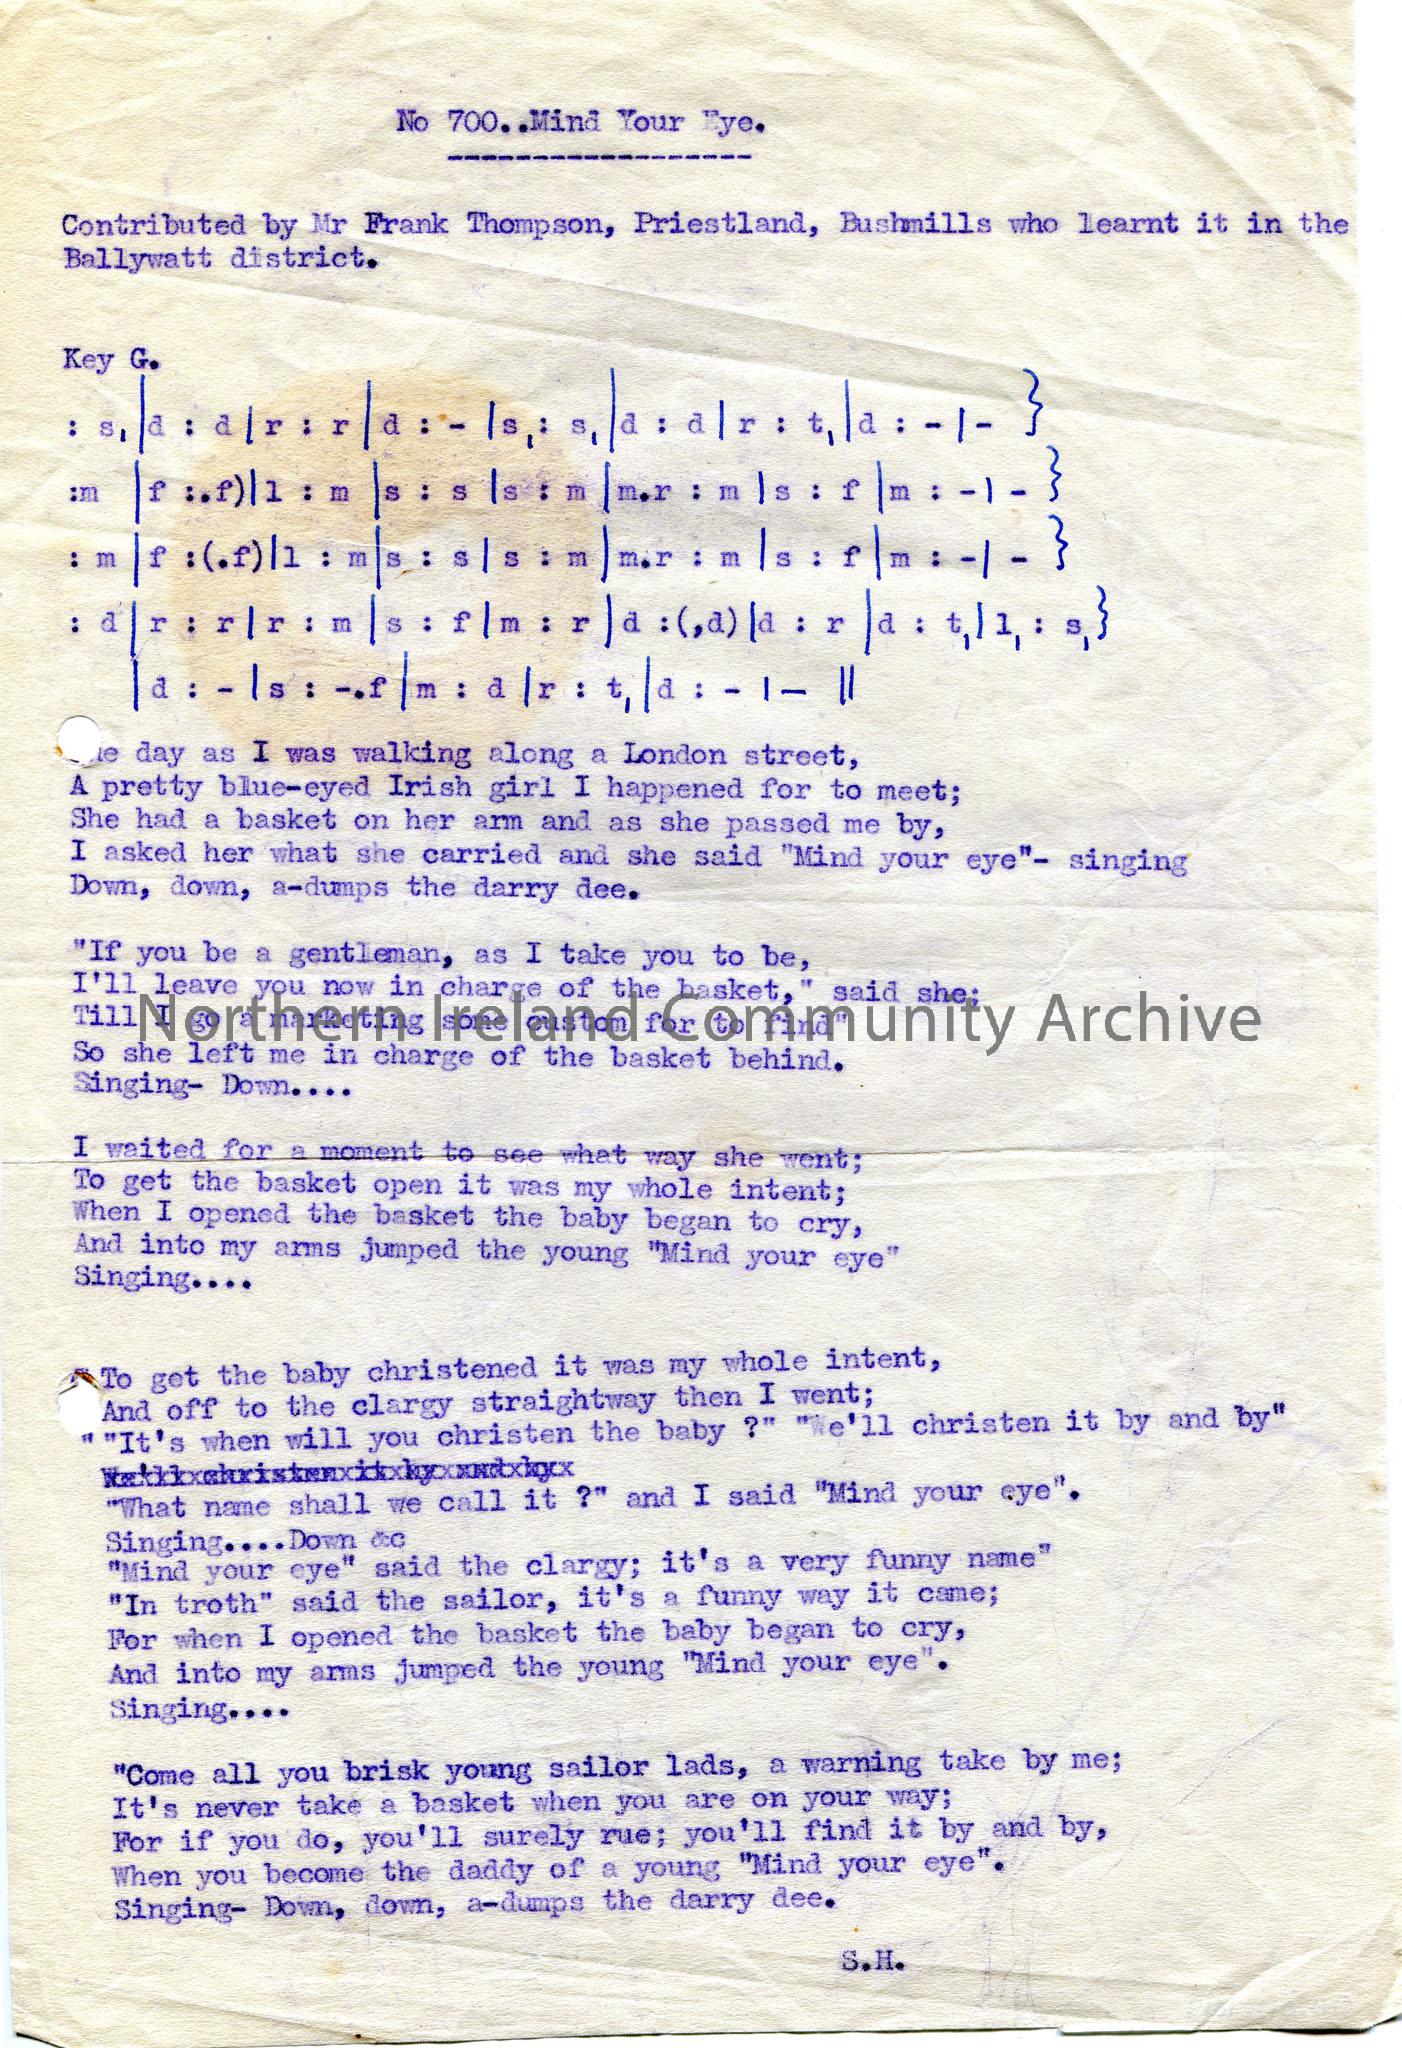 No 700..Mind Your Eye.
Contributed by Mr Frank Thompson, Priestland, Bushmills who learnt it in the
Ballywatt district.
Key G.
: s, |d : d|r : r|d : - |s, : s, |d : d|r : t, |d : -|- }
:m |f :.f)|l : m |s : s |s : m |m.r : m |s : f |m : -|- }
: m |f :(.f)|l : m|s : s|s : m |m.r : m |s : f |m : -|- }
: d|r : r|r : m |s : f|m : r |d :(,d)|d : r |d : t,|l, : s,}
|d : - |s : -.f|m : d |r : t,|d : - |— ||
day as I was walking along a London street,
A pretty blue-eyed Irish girl I happened for to meet;
She had a basket on her arm and as she passed me by,
I asked her what she carried and she said "Mind your eye"- singing
Down, down, a-dumps the darry dee.
"If you be a gentleman, as I take you to be,
I'll leave you now in charge of the basket," said she;
Till I go a marketing some custom for to find"
Northern Ireland Community Archive
So she left me in charge of the basket behind.
Singing- Down....
I waited for a moment to see what way she went;
To get the basket open it was my whole intent;
When I opened the basket the baby began to cry,
And into my arms jumped the young "Mind your eye"
Singing....
" To get the baby christened it was my whole intent,
And off to the clargy straightway then I went;
" "It's when will you christen the baby ?" "We'll christen it by and by"
We'll christen it by and by
"What name shall we call it ?" and I said "Mind your eye".
Singing....Down &c
"Mind your eye" said the clargy; it's a very funny name"
"In troth" said the sailor, it's a funny way it came;
For when I opened the basket the baby began to cry,
And into my arms jumped the young "Mind your eye".
Singing....
"Come all you brisk young sailor lads, a warning take by me;
It's never take a basket when you are on your way;
For if you do, you'll surely rue; you'll find it by and by,
When you become the daddy of a young "Mind your eye".
Singing- Down, down, a-dumps the darry dee.
S.H.